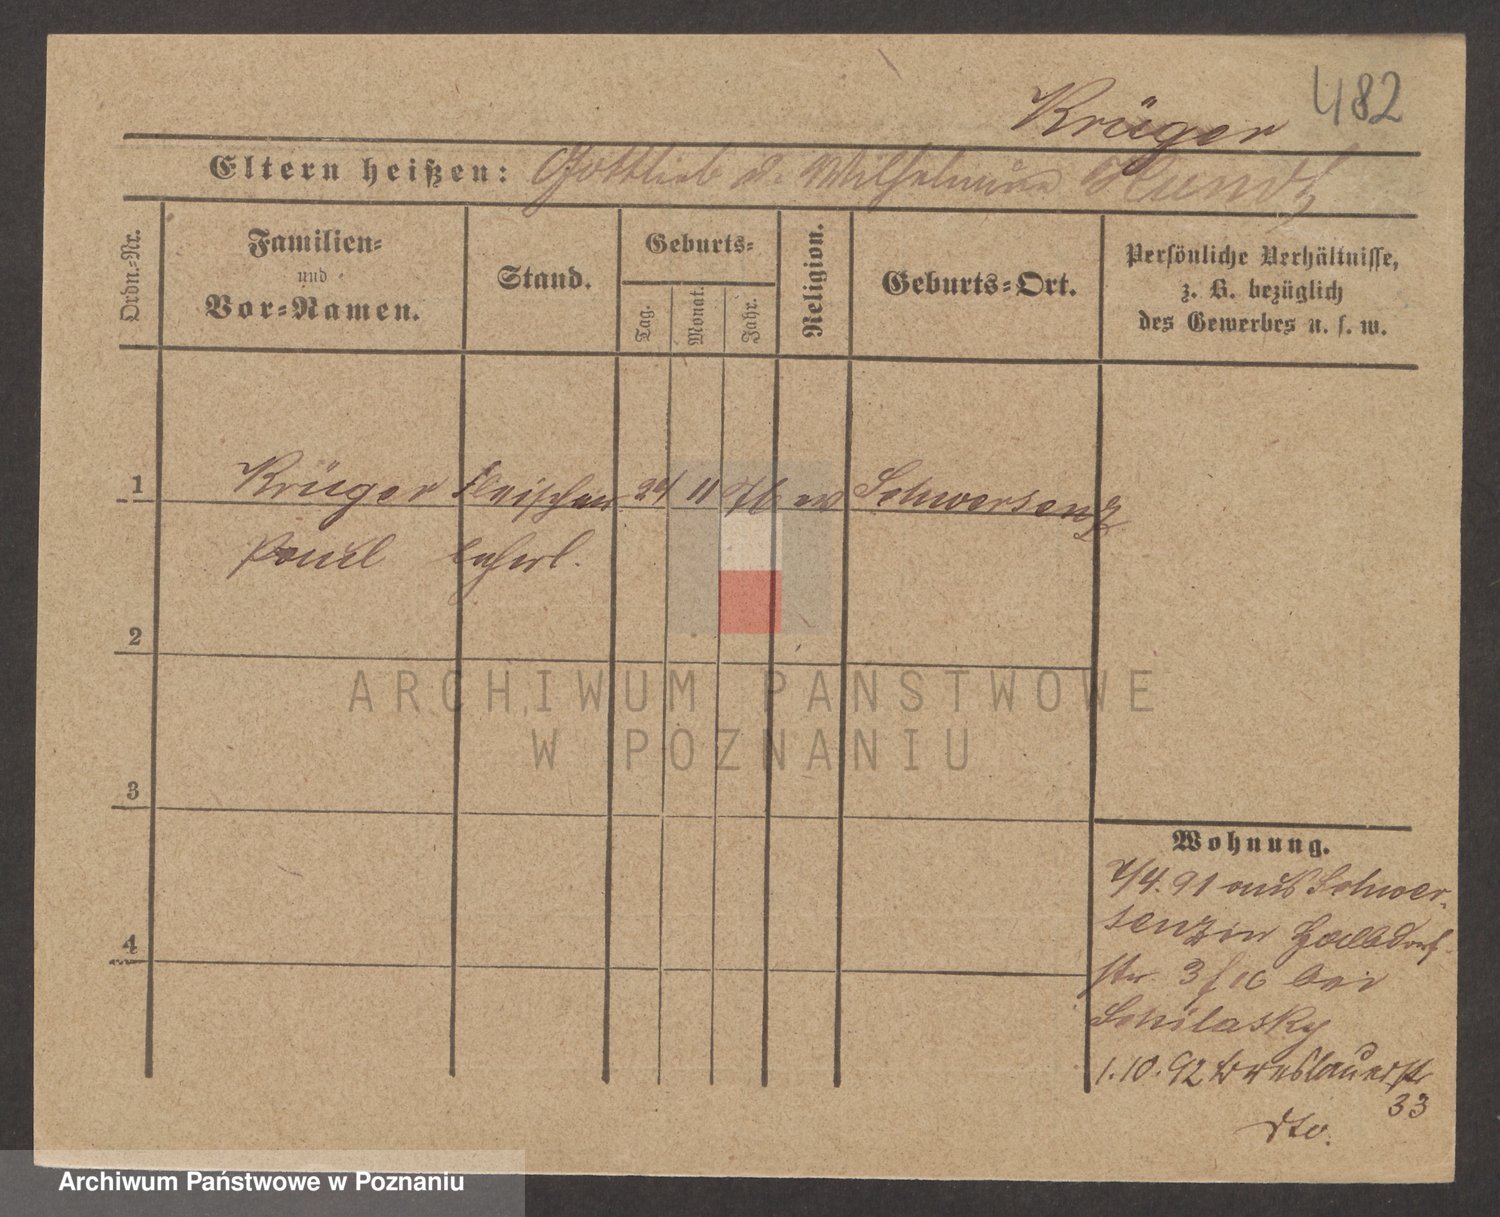 482
Krüger
Eltern heißen: Gottlieb u. Wilhelmine
Ordn.=Nr.
Familien=
und
Vor=Namen.
Stand.
Geburts=
Tag.
Monat.
Jahr.
Religion.
Geburts=Ort.
Persönliche Verhältnisse,
z. B. bezüglich
des Gewerbes u. s. w.
1 Krüger Fleischer 24 11 76 ev Schwersenz
Paul lehrl.
2
3
4
ARCHIWUM PAŃSTWOWE
W POZNANIU
Wohnung.
7/4. 91 aus Schwer-
senz in
str. 3 bei
Schilasky
1.10.92 Breslauerstr
33
dto.
Archiwum Państwowe w Poznaniu